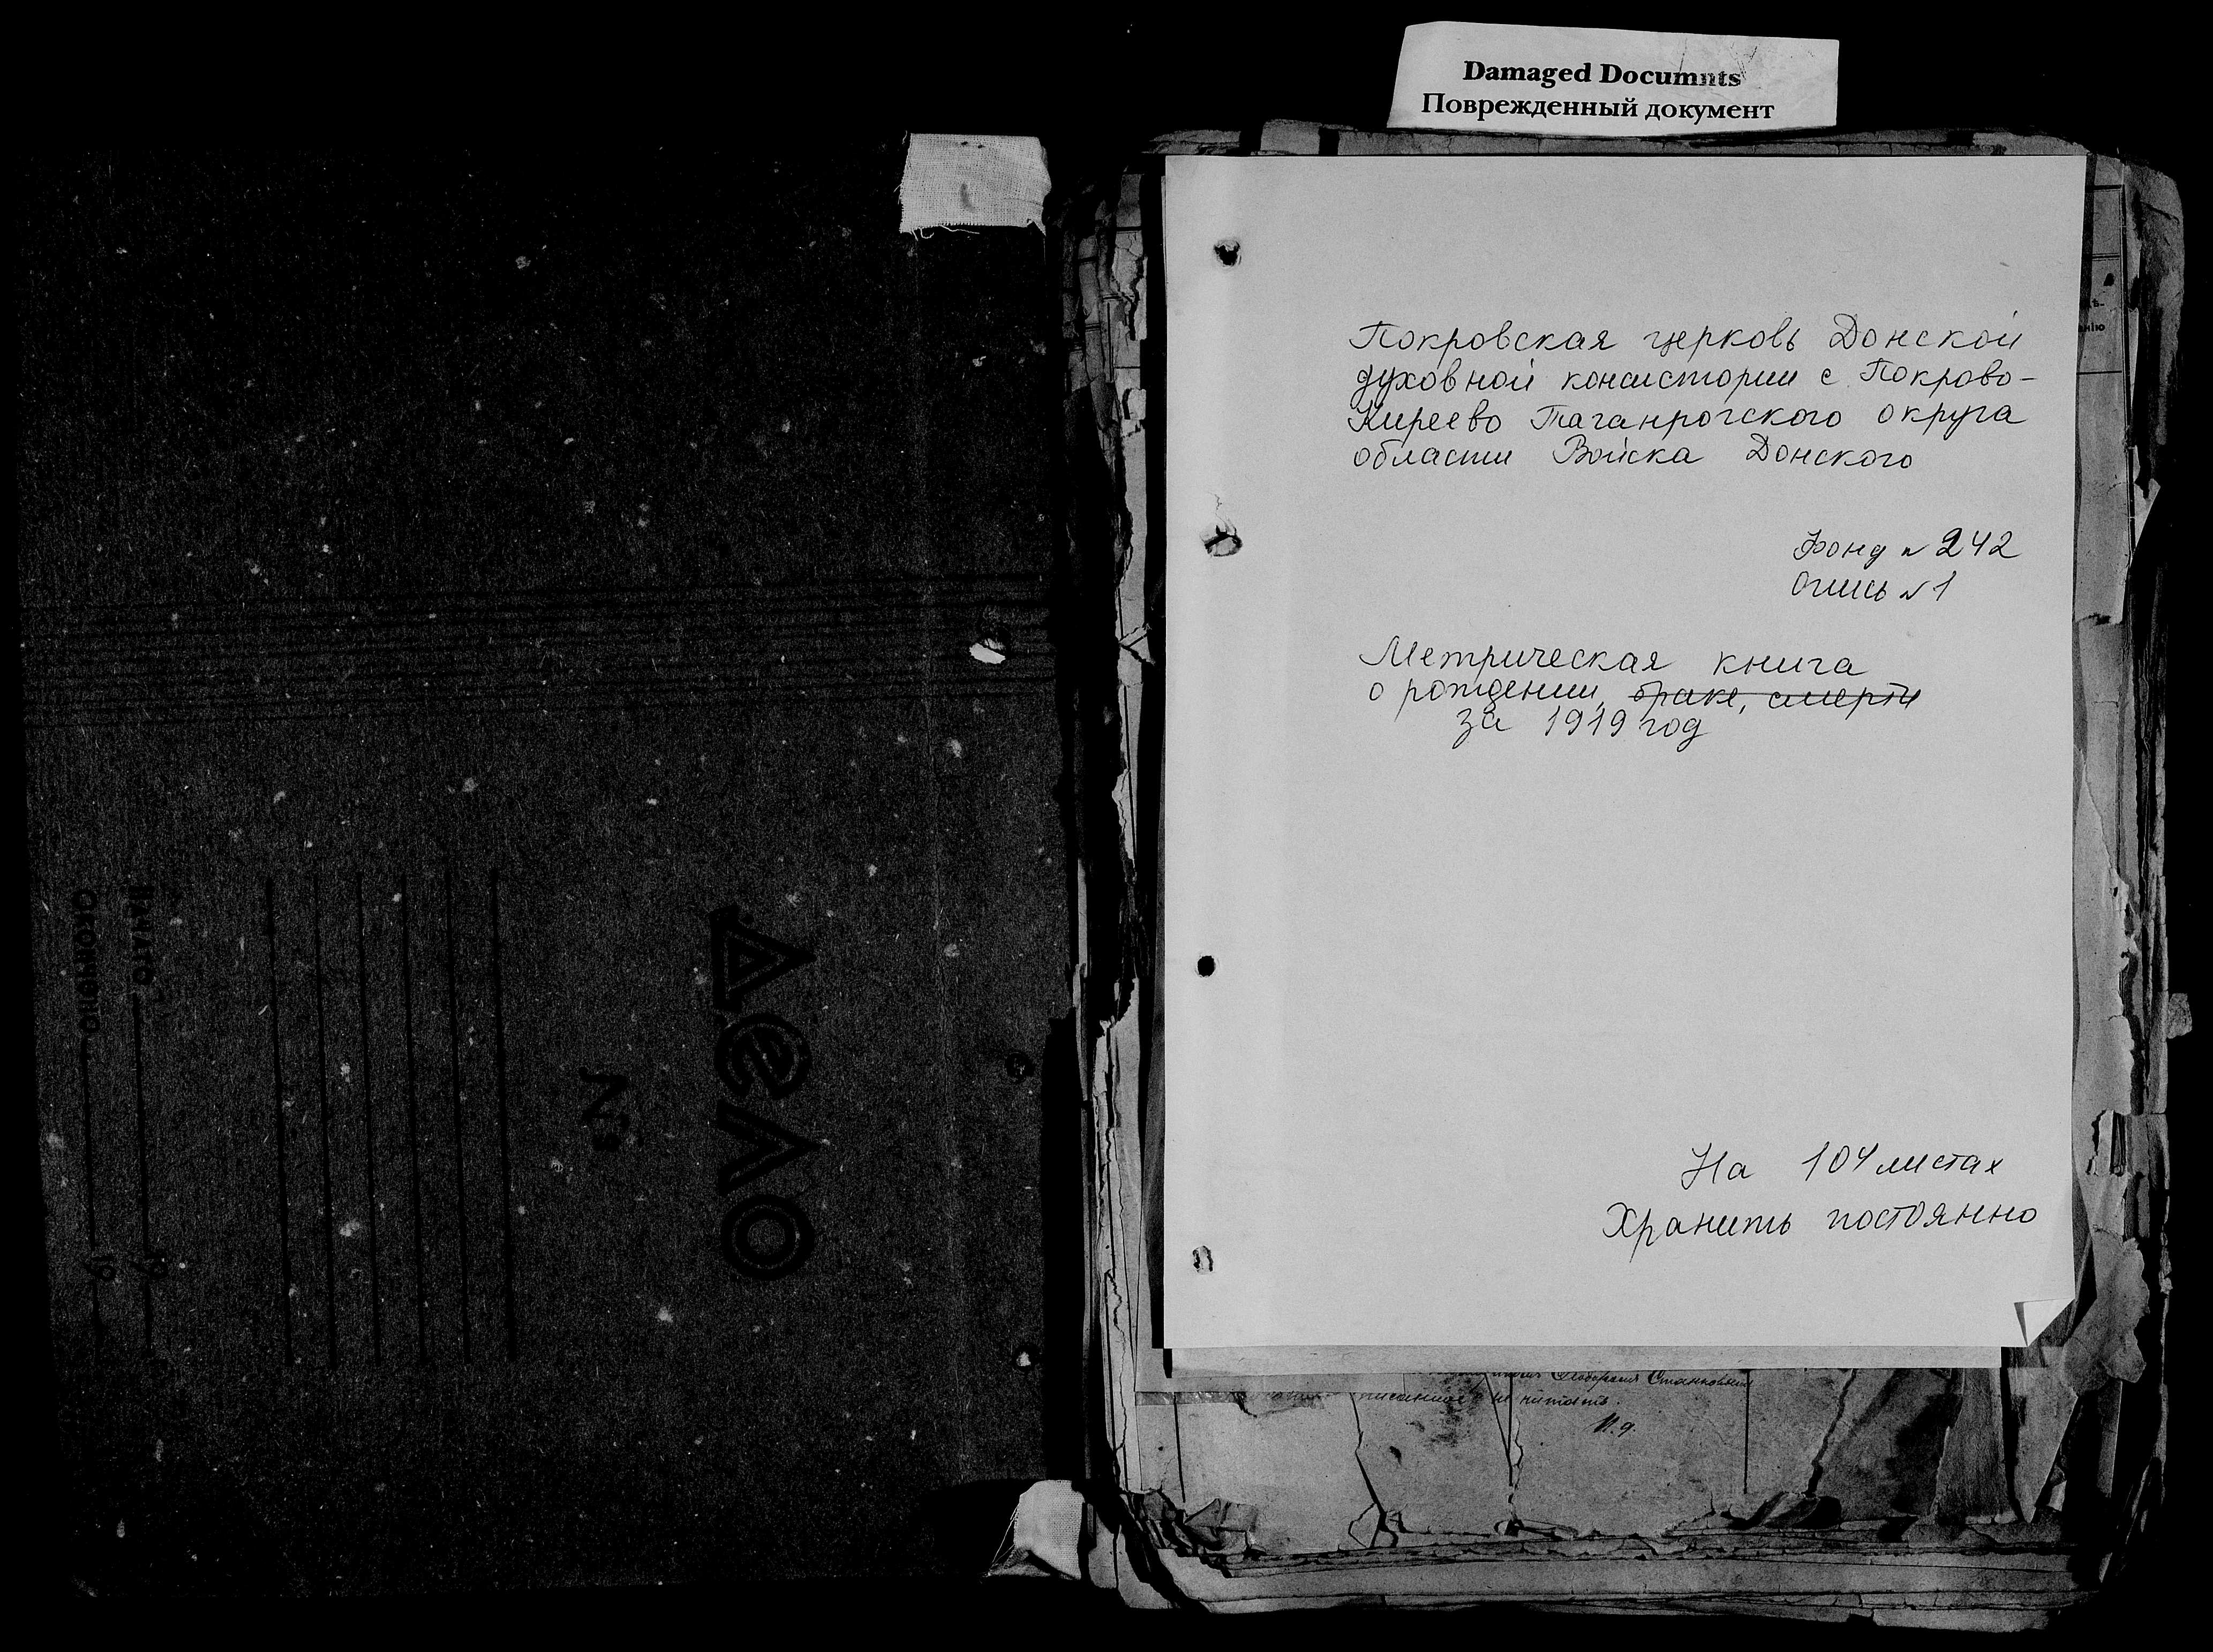 Damaged Documnts
Поврежденный документ
Покровская церковь Донской
духовной консистории с. Покрово-
Киреево Таганрогского округа
области Войска Донского
Фонд № 242
Опись № 1
Метрическая книга
о рождении, браке, смерти
за 1919 год
На 104 листах
Хранить постоянно
Станковыи
не читать.
И.д.
Дело
№
НАЧАТО 19
ОКОНЧЕНО 19